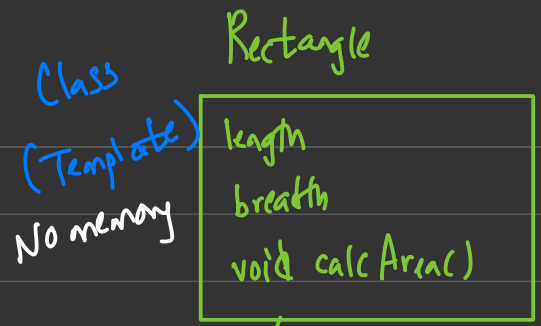 Rectangle
Class
(Template)
No memory
length
breadth
void calcArea()